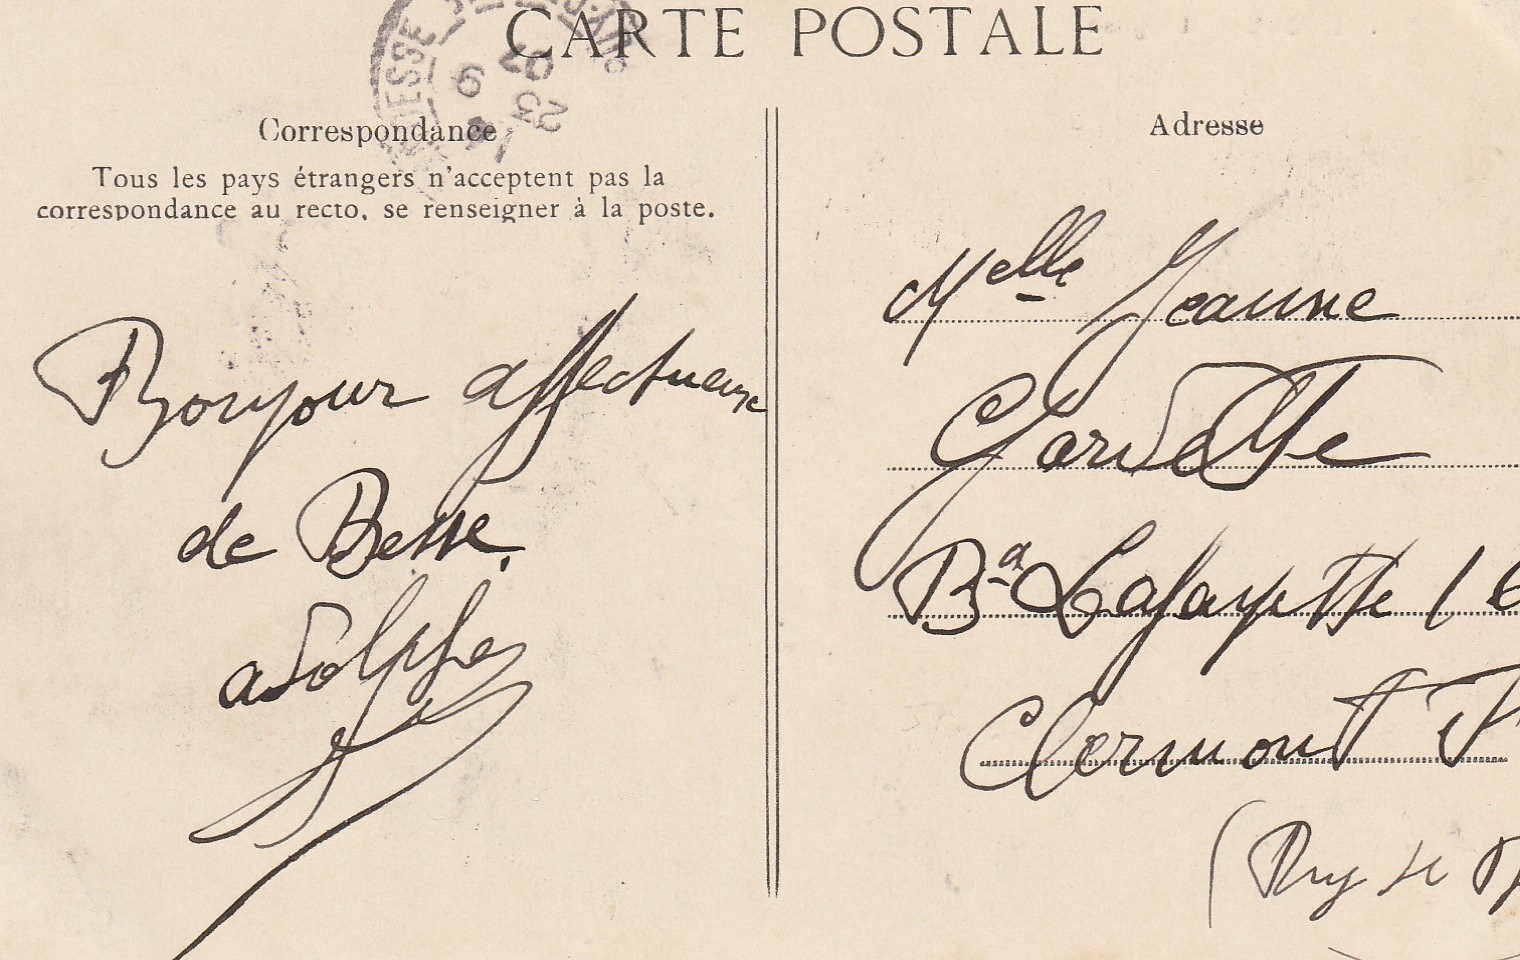 CARTE POSTALE
Correspondance
Tous les pays étrangers n'acceptent pas la
correspondance au recto, se renseigner à la poste.
Bonjour affectueux
de Besse.
adolphe
Adresse
Melle Jeanne
Gardette
Bd Lafayette 16
Clermont F
(Puy de D